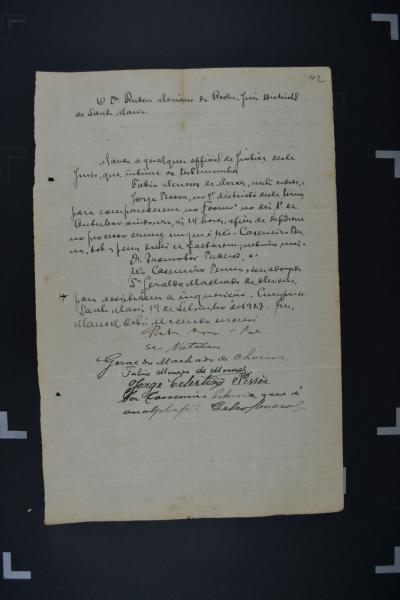 42
O Dr. Ruben Mariano da Rocha, Juiz Districtal
de Santa Maria
Mando a qualquer official de justiça deste
Juizo, que intime as testemunhas
Fabio Menezes de Moraes, nesta cidade, e
Jorge Pessôa, no 1º districto deste termo
para comparecerem no Forum no dia 1º de
Outubro vindouro, ás 14 horas, afim de deporem
no processo crime em que é réo Casemiro
na, sob a pena da lei si faltarem; intime mais
Dr. Promotor Publico, o
réo Casemiro e seu advogado
Dr. Geraldo Machado de Oliveira,
para assistirem a inquirição. Cumpra-se.
Santa Maria 19 de Setembro de 1927. Eu,
Manoel escrivão
Geraldo Machado de Oliveira
Fabio Menezes de Moraes
Jorge Celestino Pessôa
Por Casemiro que é
analphabeto